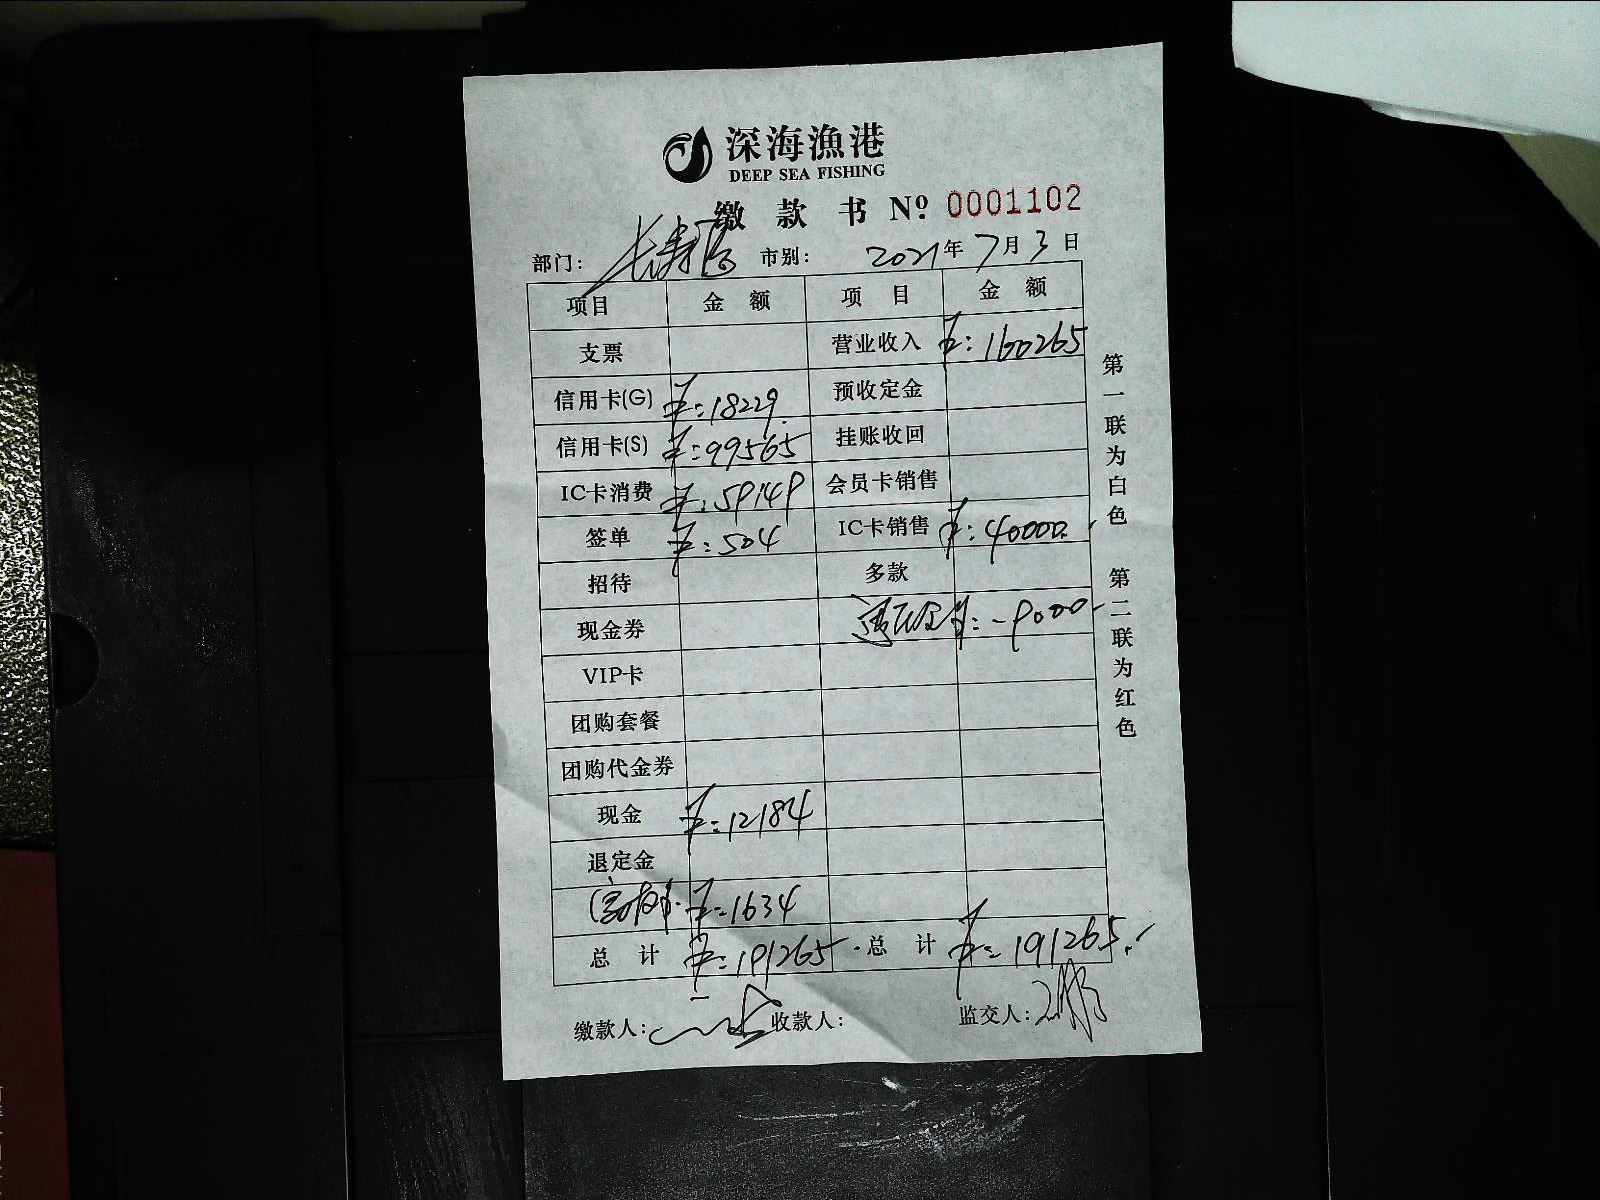 深海漁港
DEEP SEA FISHING
缴款书 Nº 0001102
部门: 市别: 2021年7月3日
项目 金额 项目 金额
支票 营业收入 ¥:160265
信用卡(G) ¥:18229. 预收定金
信用卡(S) ¥:99565 挂账收回
IC卡消费 ¥:59149 会员卡销售
签单 ¥:504 IC卡销售 ¥:40000.
招待 多款
现金券 ¥:-9000-
VIP卡
团购套餐
团购代金券
现金 ¥:12184
退定金
¥:1634
总计 ¥:191265 总计 ¥:191265.
缴款人: 收款人: 监交人:
第一联为白色 第二联为红色